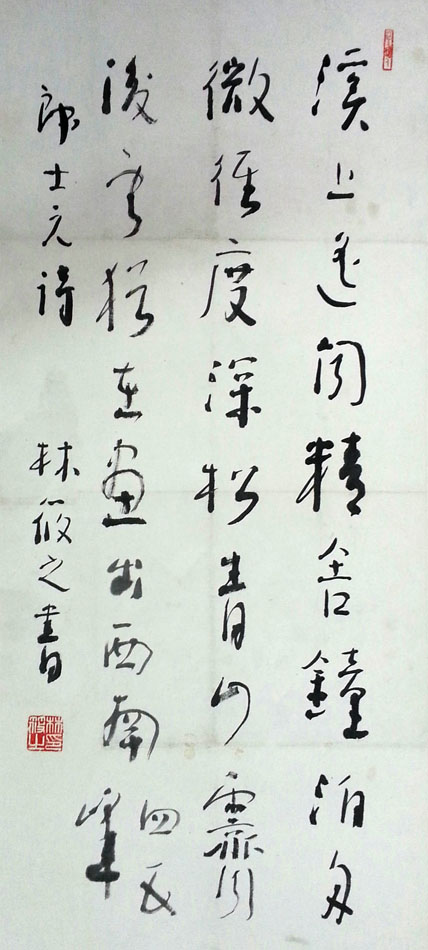 溪上遙聞精舍鐘泊舟
微徑度深松青山霽
後雲猶在畫出西南四五峰
郎士元詩 林筱之書